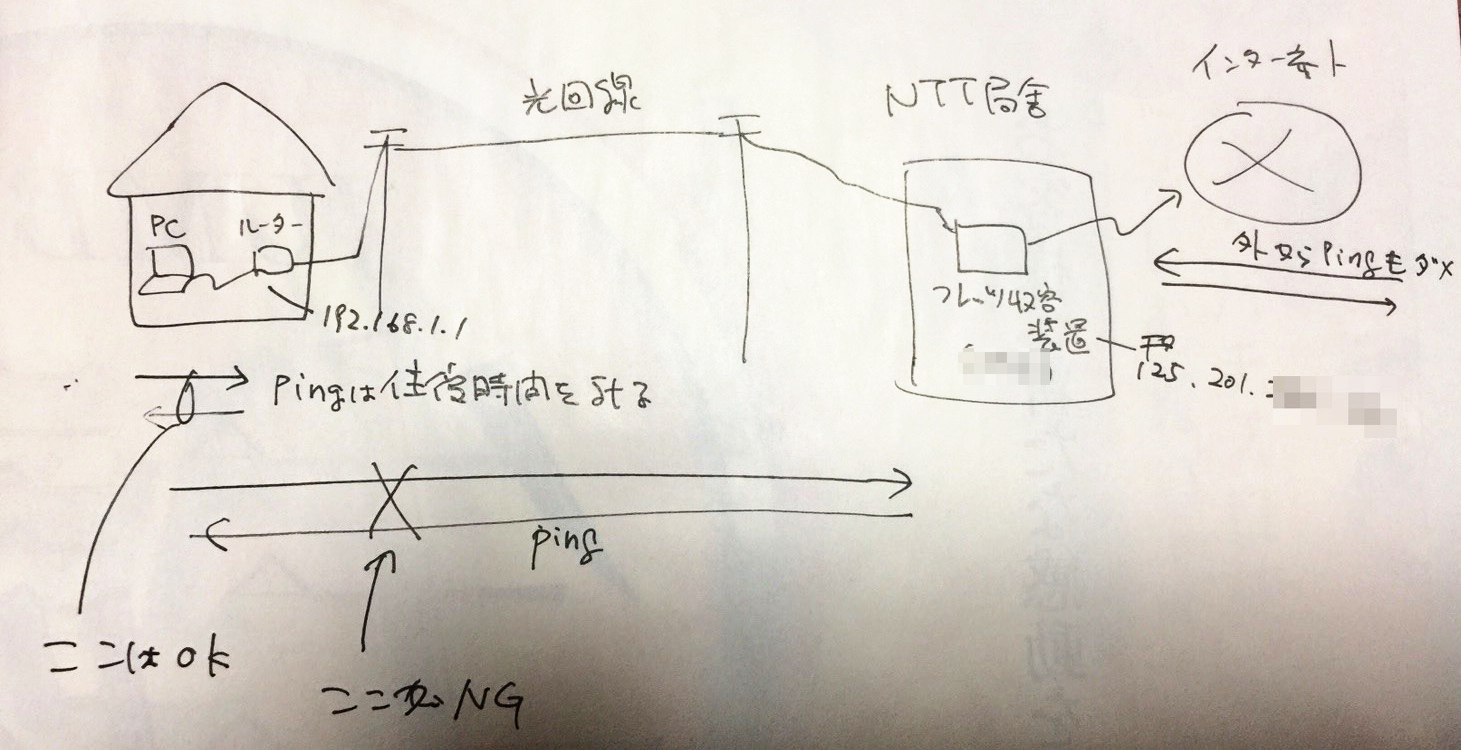 インターネット
光回線
NTT局舎
PC
ルーター
外からPingもダメ
192.168.1.1
フレッツ収容
装置
125.201.
Pingは往復時間を計る
ping
ここはOK
ここがNG